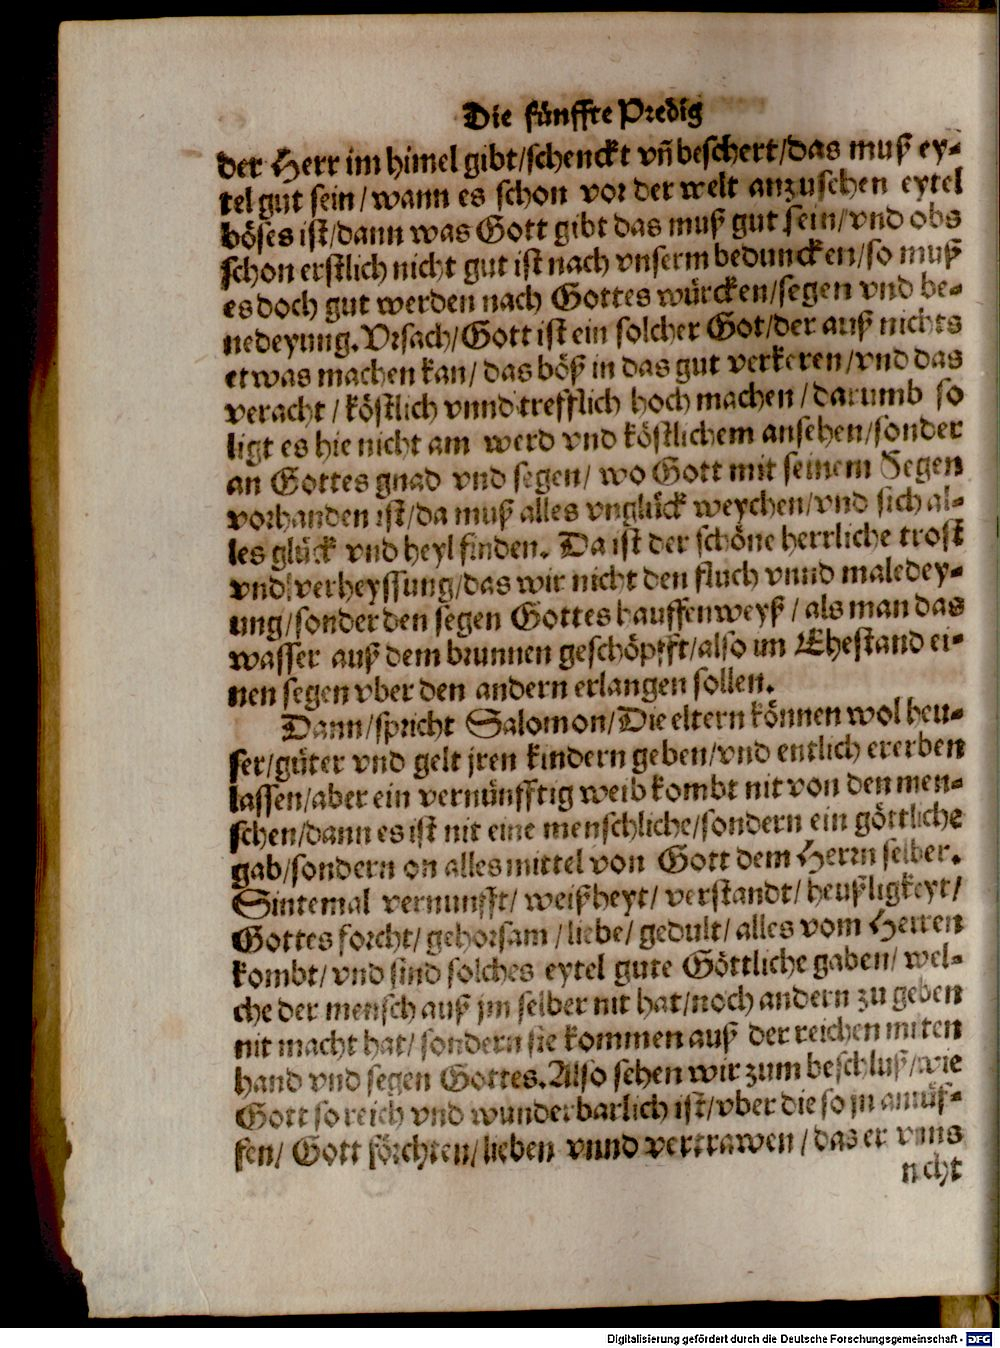 Die fünffte Predig
der Herr im him̃el gibt/schenckt vñ beschert/das muß ey-
tel gut sein/wann es schon vor der welt anzusehen eytel
böses ist/dann was Gott gibt das muß gut sein/vnd obs
schon erstlich nicht gut ist nach vnserm beduncken/so muß
es doch gut werden nach Gottes würcken/segen vnd be-
nedeyung. Vrsach/Gott ist ein solcher Got/der auß nichts
etwas machen kan/das böß in das gut verkeren/vnd das
veracht/köstlich vnnd trefflich hoch machen/darumb so
ligt es hie nicht am werd vnd köstlichem ansehen/sonder
an Gottes gnad vnd segen/wo Gott mit seinem Segen
vorhanden ist/da muß alles vnglück weychen/vnd sich al-
les glück vnd heyl finden. Da ist der schöne herrliche trost
vnd verheyssung/das wir nicht den fluch vnnd maledey-
ung/sonder den segen Gottes hauffenweyß/als man das
wasser auß dem brunnen geschöpfft/also im Ehestand ei-
nen segen vber den andern erlangen sollen.
Dann/spricht Salomon/Die eltern können wol heu-
ser/güter vnd gelt jren kindern geben/vnd entlich ererben
lassen/aber ein vernünfftig weib kombt nit von den men-
schen/dann es ist nit eine menschliche/sondern ein göttliche
gab/sondern on alles mittel von Gott dem Herrn selber.
Sintemal vernunfft/weißheyt/verstandt/heußligkeyt/
Gottes forcht/gehorsam/liebe/gedult/alles vom Herren
kombt/vnd sind solches eytel gute Göttliche gaben/wel-
che der mensch auß jm selber nit hat/noch andern zu geben
nit macht hat/sondern sie kommen auß der reichen miten
hand vnd segen Gottes. Also sehen wir zum beschluß/wie
Gott so reich vnd wunderbarlich ist/vber die so jn anrüf-
fen/Gott förchten/lieben vnnd vertrawen/das er vnns
nicht
Digitalisierung gefördert durch die Deutsche Forschungsgemeinschaft - DFG